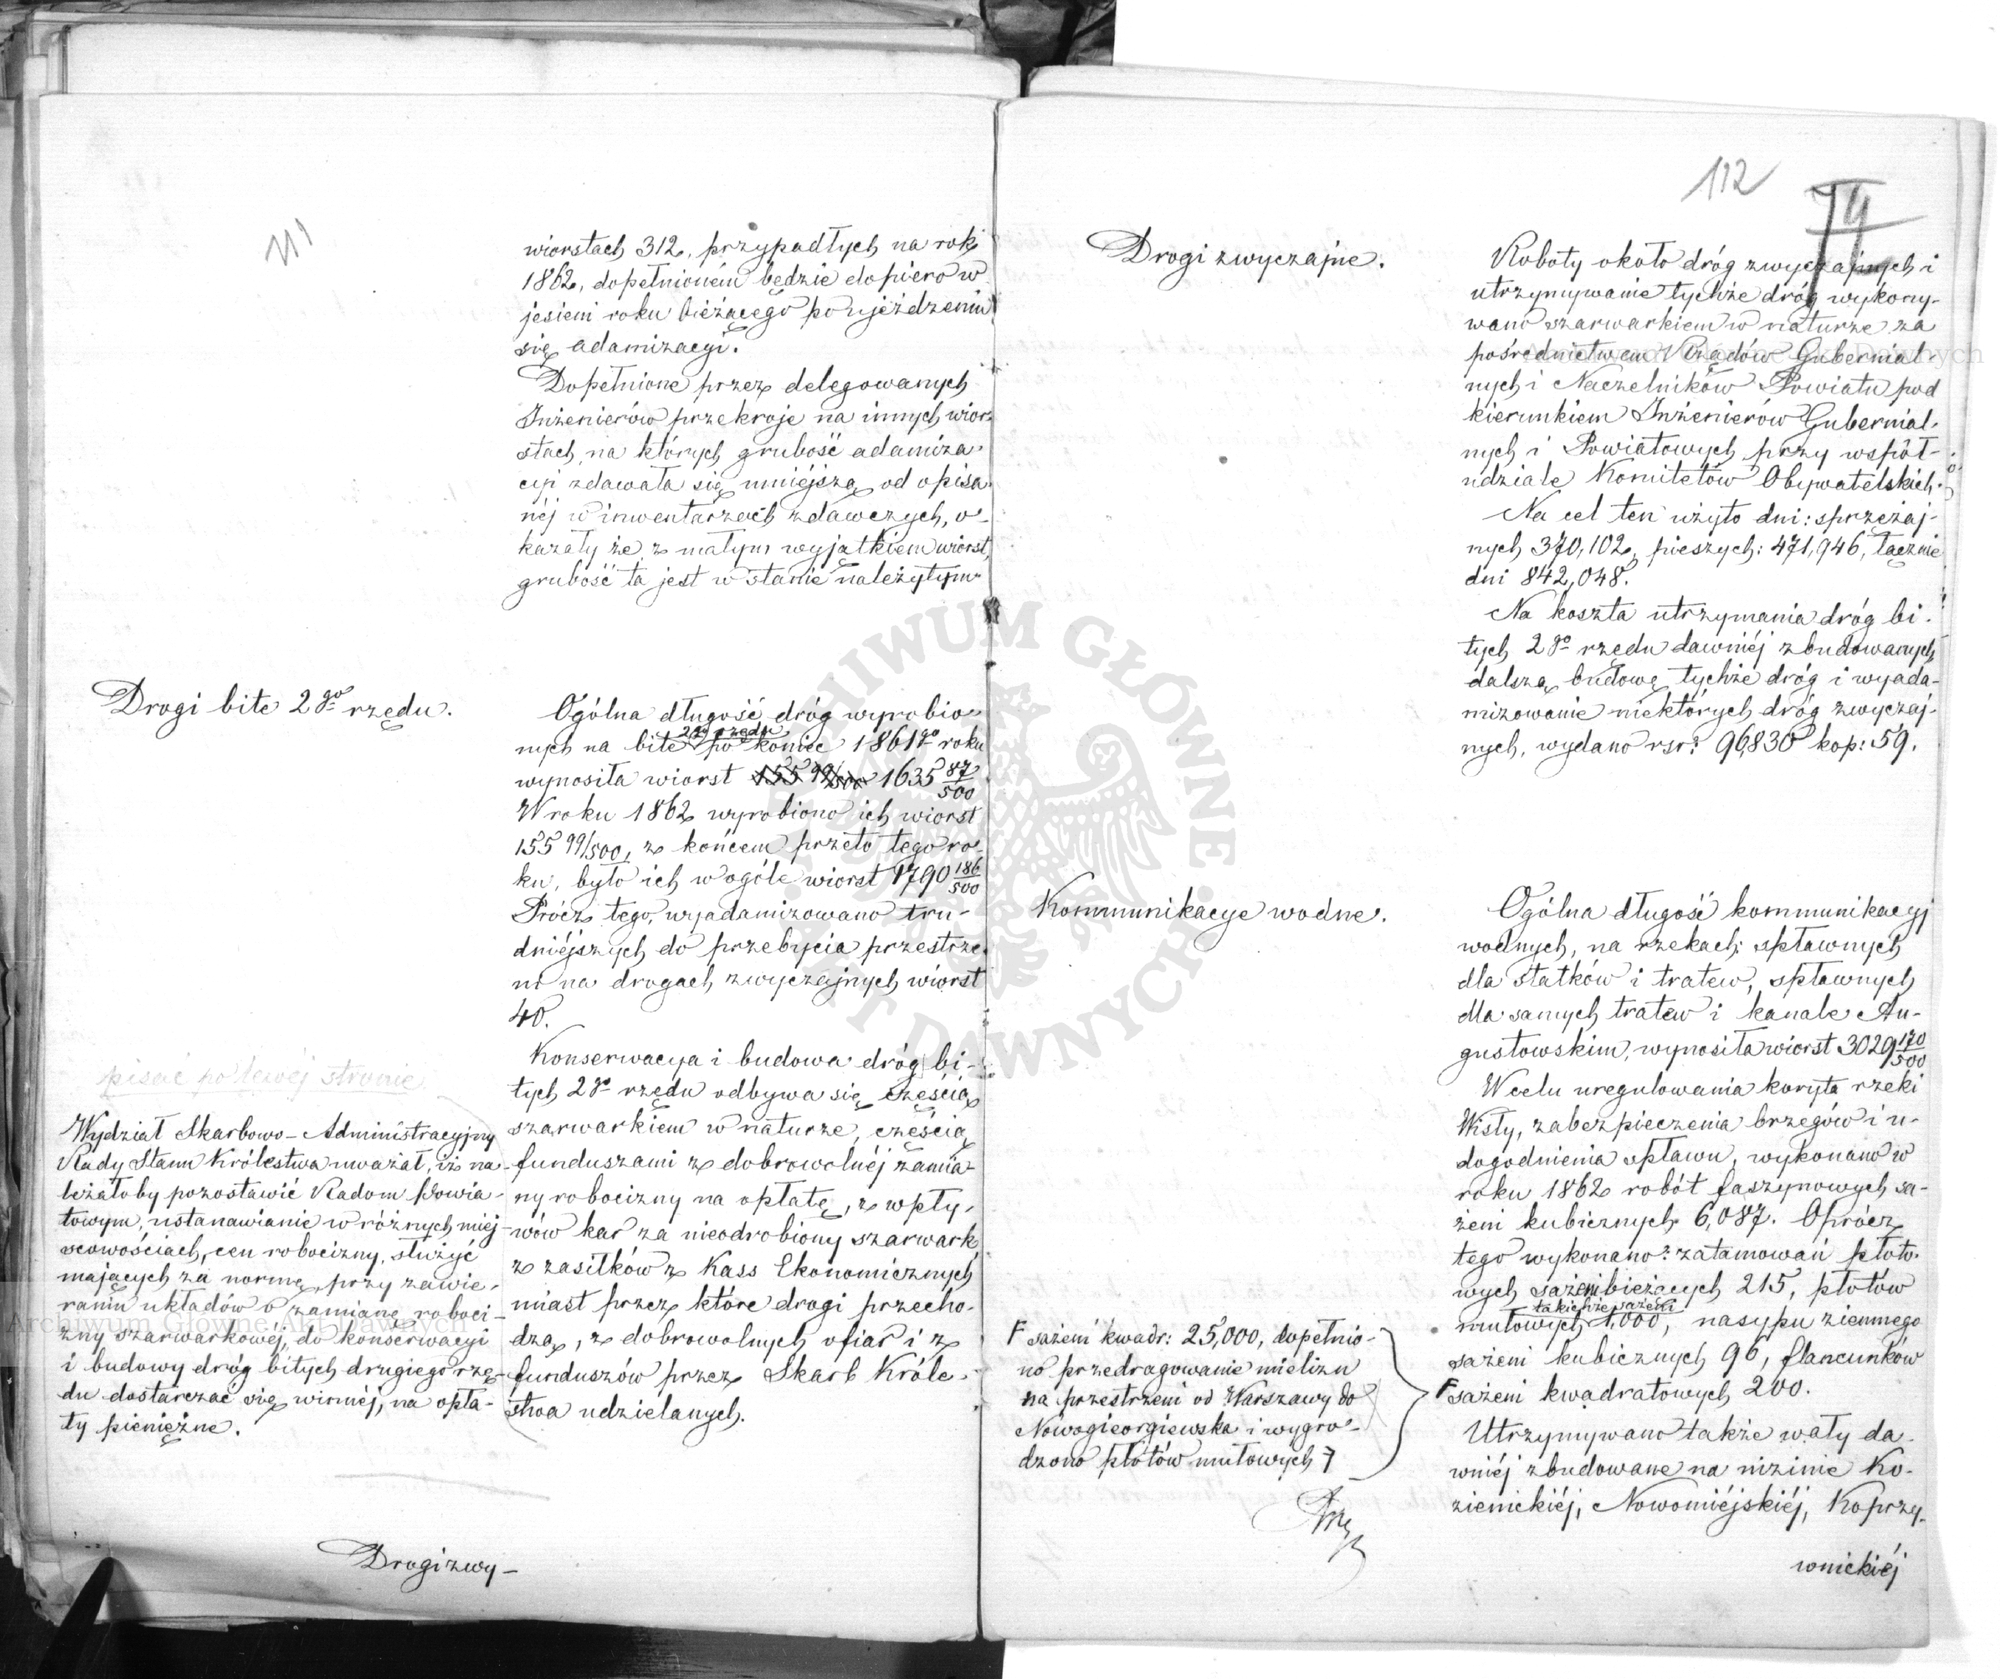 111
wiorstach 312, przypadłych na rok
1862, dopełnioném będzie dopiero w
jesieni roku bieżącego po ujeżdżeniu
się adamizacyi.
Dopełnione przez delegowanych
Inżenierów przekroje na innych wior-
stach, na których grubość adamiza-
cyi zdawała się mniejszą od opisa-
néj w inwentarzach zdawczych, o-
kazały że, z małym wyjątkiem wiorst,
grubość ta jest w stanie należytym
Drogi bite 2go rzędu.
Ogólna długość dróg wyrobio-
nych na bite 2go rzędu po koniec 1861go roku
wynosiła wiorst 155 99/500 1635 87/500
W roku 1862 wyrobiono ich wiorst
155 99/500, z końcem przeto tego ro-
ku, było ich w ogóle wiorst 1790 186/500
Prócz tego, wyadamizowano tru-
dniéjszych do przebycia przestrze-
ni na drogach zwyczajnych wiorst
40.
Konserwacya i budowa dróg bi-
tych 2go rzędu odbywa się częścią
szarwarkiem w naturze, częścią
funduszami z dobrowolnéj zamia-
ny robocizny na opłatę, z wpły-
wów kar za nieodrobiony szarwark,
z zasiłków z Kass Ekonomicznych
miast przez które drogi przecho-
dzą, z dobrowolnych ofiar i z
funduszów przez Skarb Króle-
stwa udzielanych.
pisać po lewéj stronie
Wydział Skarbowo-Administracyjny
Rady Stanu Królestwa uważał, iż na-
leżałoby pozostawić Radom Powia-
towym, ustanawianie w różnych miej-
scowościach, cen robocizny, służyć
mających za normę, przy zawie-
raniu układów o zamianę roboci-
zny szarwarkowéj, do konserwacyi
i budowy dróg bitych drugiego rzę-
du dostarczać się winnéj, na opła-
ty pieniężne.
Drogi zwy-
112
Drogi zwyczajne.
Roboty około dróg zwyczajnych i
utrzymywanie tychże dróg wykony-
wano szarwarkiem w naturze za
pośrednictwem Rządów Gubernial-
nych i Naczelników Powiatu pod
kierunkiem Inżenierów Gubernial-
nych i Powiatowych przy współ-
udziale Komitetów Obywatelskich.
Na cel ten użyto dni: sprzężaj-
nych 370,102, pieszych: 471,946, łącznie
dni 842,048.
Na koszta utrzymania dróg bi-
tych 2go rzędu dawniéj zbudowanych
dalszą budowę tychże dróg i wyada-
mizowanie niektórych dróg zwyczaj-
nych, wydano rsr: 96,830 kop: 59.
Kommunikacye wodne.
Ogólna długość kommunikacyj
wodnych, na rzekach: spławnych
dla statków i tratew, spławnych
dla samych tratew i kanale Au-
gustowskim, wynosiła wiorst 3029 170/500
W celu uregulowania koryta rzeki
Wisły, zabezpieczenia brzegów i u-
dogodnienia spławu, wykonano w
roku 1862 robót faszynowych są-
żeni kubicznych 6,087. Oprócz
tego wykonano: zatamowań płoto-
wych sążeni bieżących 215, płotów
mułowych takichże sążeni 1,000, nasypu ziemnego
sążeni kubicznych 96, flancunków
F sążeni kwadratowych 200.
Utrzymywano także wały da-
wniéj zbudowane na nizinie Ko-
zienickiéj, Nowomiéjskiéj, Koprzy-
wnickiéj
F sążeni kwadr: 25,000, dopełnio-
no przedragowanie mielizn
na przestrzeni od Warszawy do
Nowogieorgiewska i wygro-
dzono płotów mułowych 7
Archiwum Główne Akt Dawnych
ARCHIWUM GŁÓWNE AKT DAWNYCH
Archiwum Główne Akt Dawnych